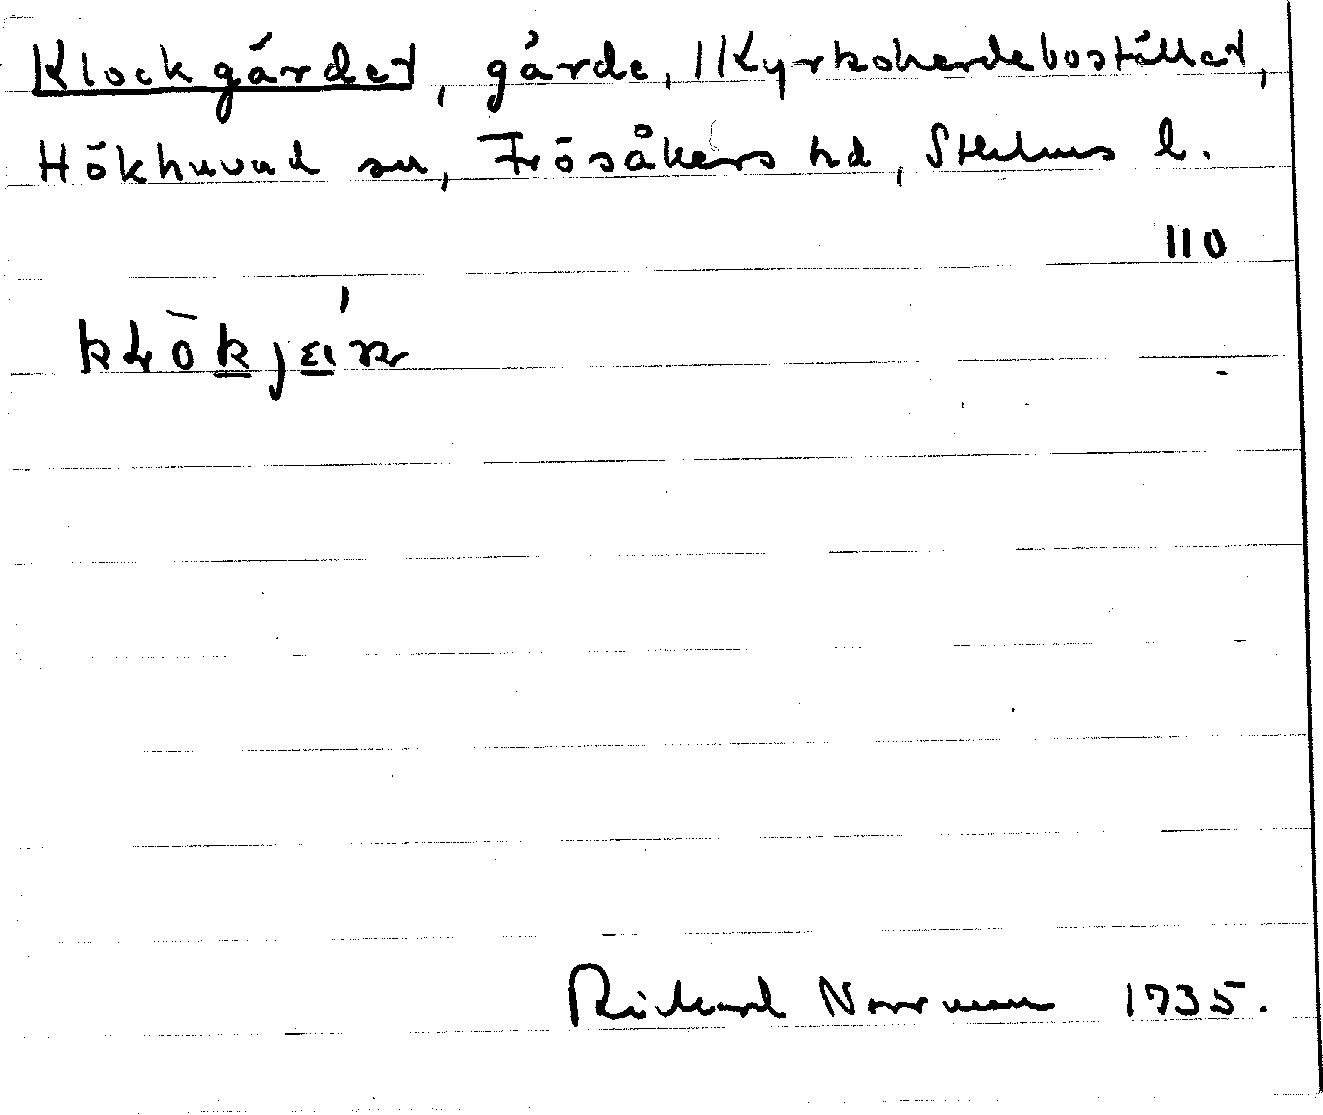 Klockgärdet, gärde, Kyrkoherdebostället,
Hökhuvud sn, Frösåkers hd, Sthlms l.
110
Rickard Norrman 1935.